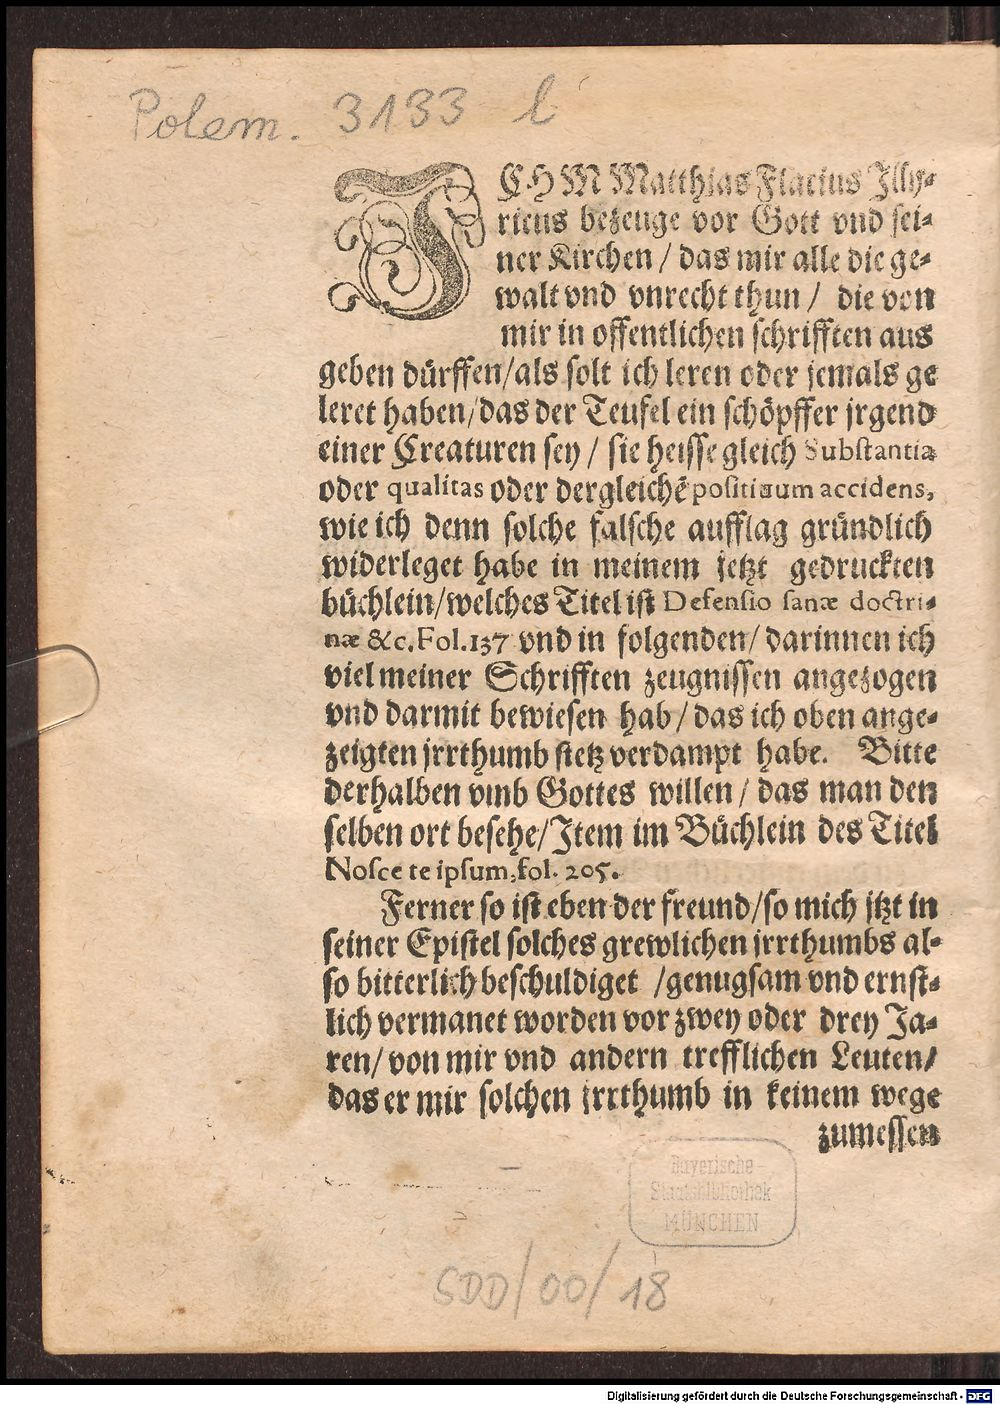 Polem. 3133 l
JCHM Matthias Flacius Jlly⸗
ricus bezeuge vor Gott vnd sei⸗
ner Kirchen / das mir alle die ge⸗
walt vnd vnrecht thun / die von
mir in offentlichen schrifften aus
geben dürffen/als solt ich leren oder jemals ge
leret haben/das der Teufel ein schöpffer jrgend
einer Creaturen sey / sie heisse gleich Substantia
oder qualitas oder dergleichē positiuum accidens,
wie ich denn solche falsche aufflag gründlich
widerleget habe in meinem jetzt gedruckten
büchlein/welches Titel ist Defensio sanæ doctri⸗
næ &c. Fol. 137 vnd in folgenden/ darinnen ich
viel meiner Schrifften zeugnissen angezogen
vnd darmit bewiesen hab / das ich oben ange⸗
zeigten jrrthumb stetz verdampt habe. Bitte
derhalben vmb Gottes willen / das man den
selben ort besehe/Jtem im Büchlein des Titel
Nosce te ipsum, fol. 205.
Ferner so ist eben der freund/so mich jtzt in
seiner Epistel solches grewlichen jrrthumbs al⸗
so bitterlich beschuldiget /genugsam vnd ernst⸗
lich vermanet worden vor zwey oder drey Ja⸗
ren/ von mir vnd andern trefflichen Leuten/
das er mir solchen jrrthumb in keinem wege
zumessen
Bayerische
Staatsbibliothek
MÜNCHEN
SDD/00/18
Digitalisierung gefördert durch die Deutsche Forschungsgemeinschaft - DFG